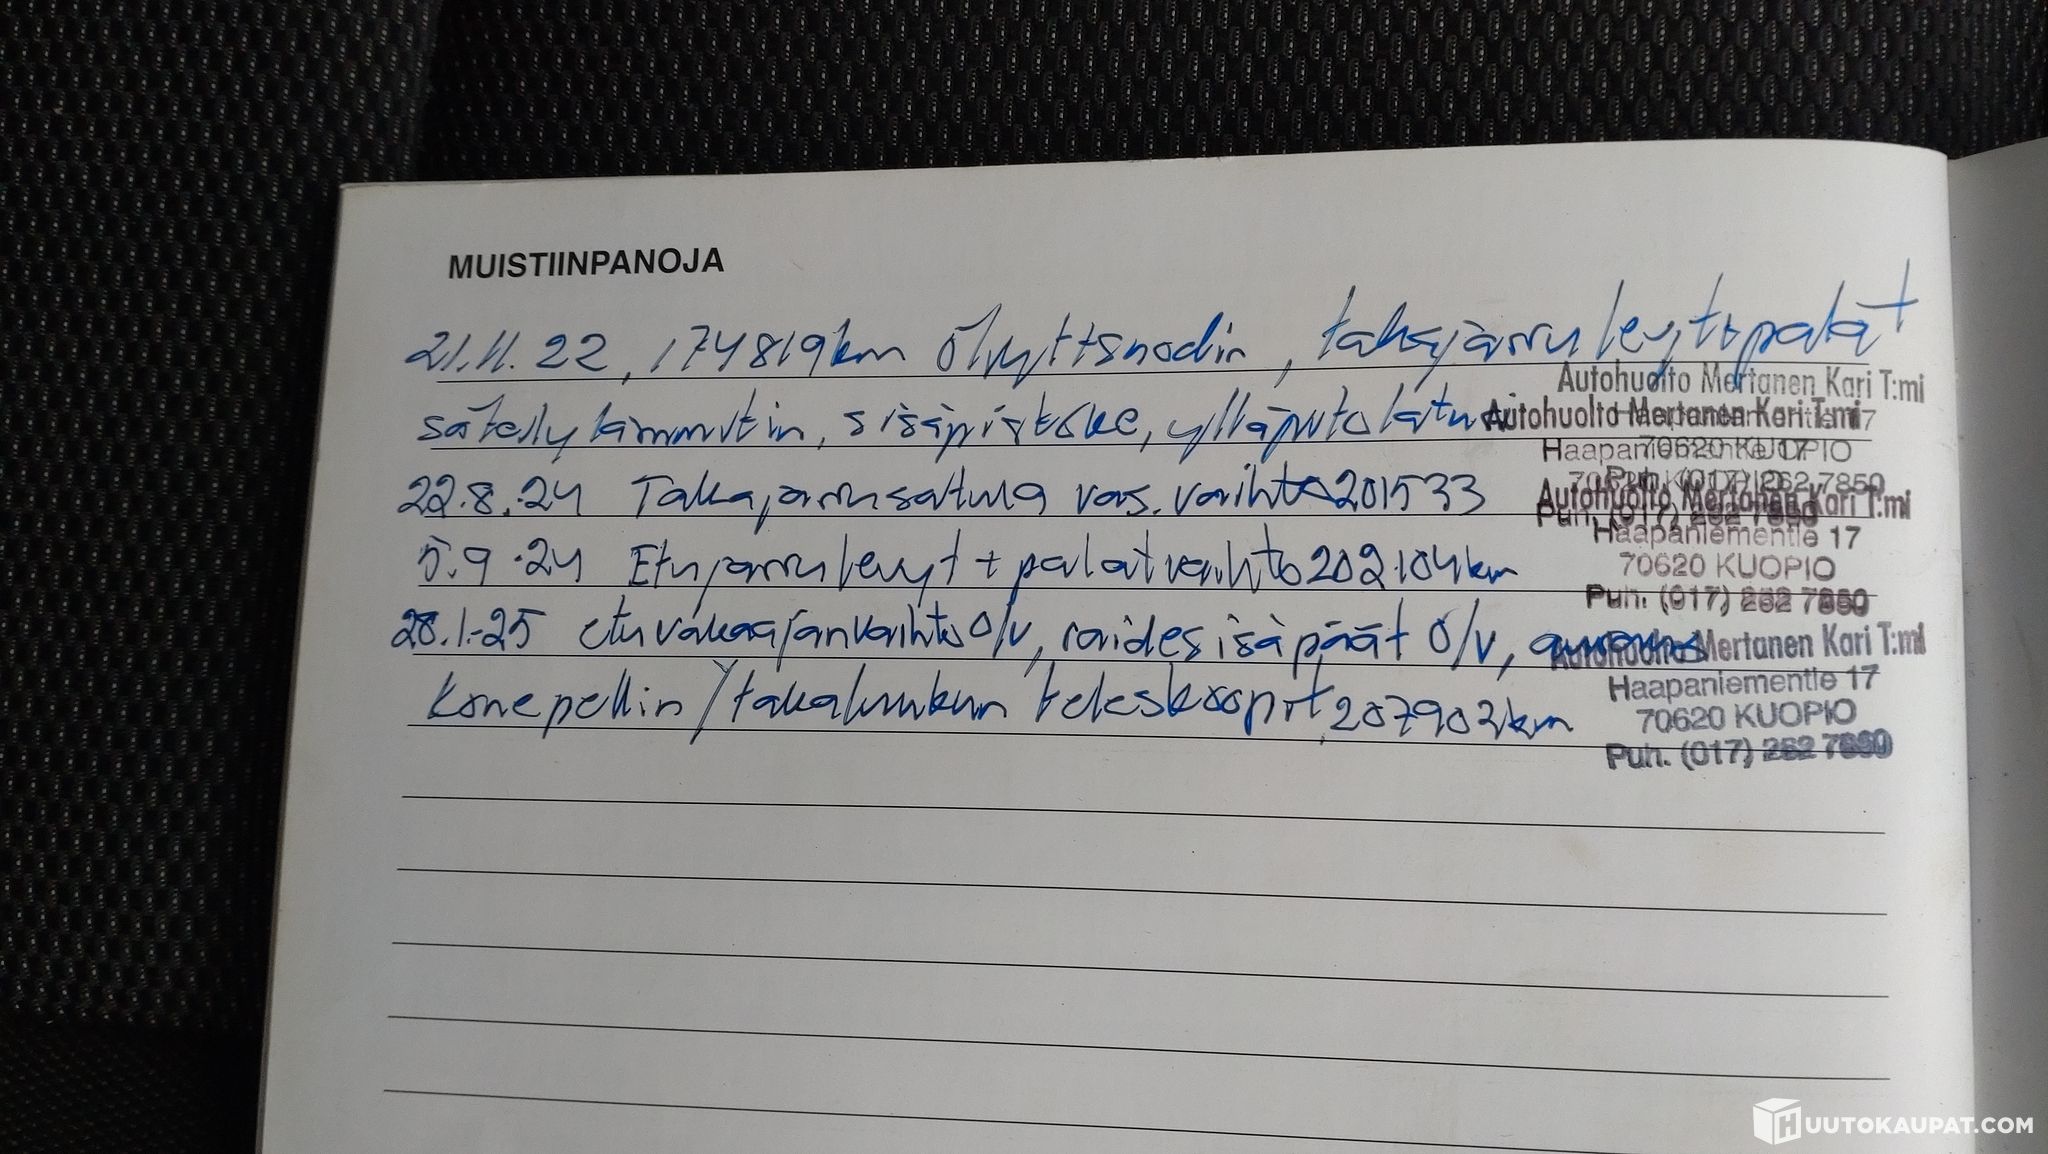 MUISTIINPANOJA
21.11.22, 174819km Öljyttsnodin, takajarrulevyt+palat
Autohuolto Mertanen Kari T:mi
säteilylämmitin, sisäpistoke, ylläpitolaturi
Autohuolto Mertanen Kari T:mi
Haapaniementie 17
70620 KUOPIO
Puh. (017) 262 7850
22.8.24 Takajarrusatula vas. vaihto 201533
Autohuolto Mertanen Kari T:mi
Haapaniementie 17
5.9.24 Etujarrulevyt + palat vaihto 202104km
70620 KUOPIO
Puh. (017) 262 7850
28.1.25 etuvakaajanvaihto O/V, raidesisäpäät O/V,
Autohuolto Mertanen Kari T:mi
Haapaniementie 17
Konepellin/takaluukun teleskoopit, 207902km
70620 KUOPIO
Puh. (017) 262 7850
HUUTOKAUPAT.COM